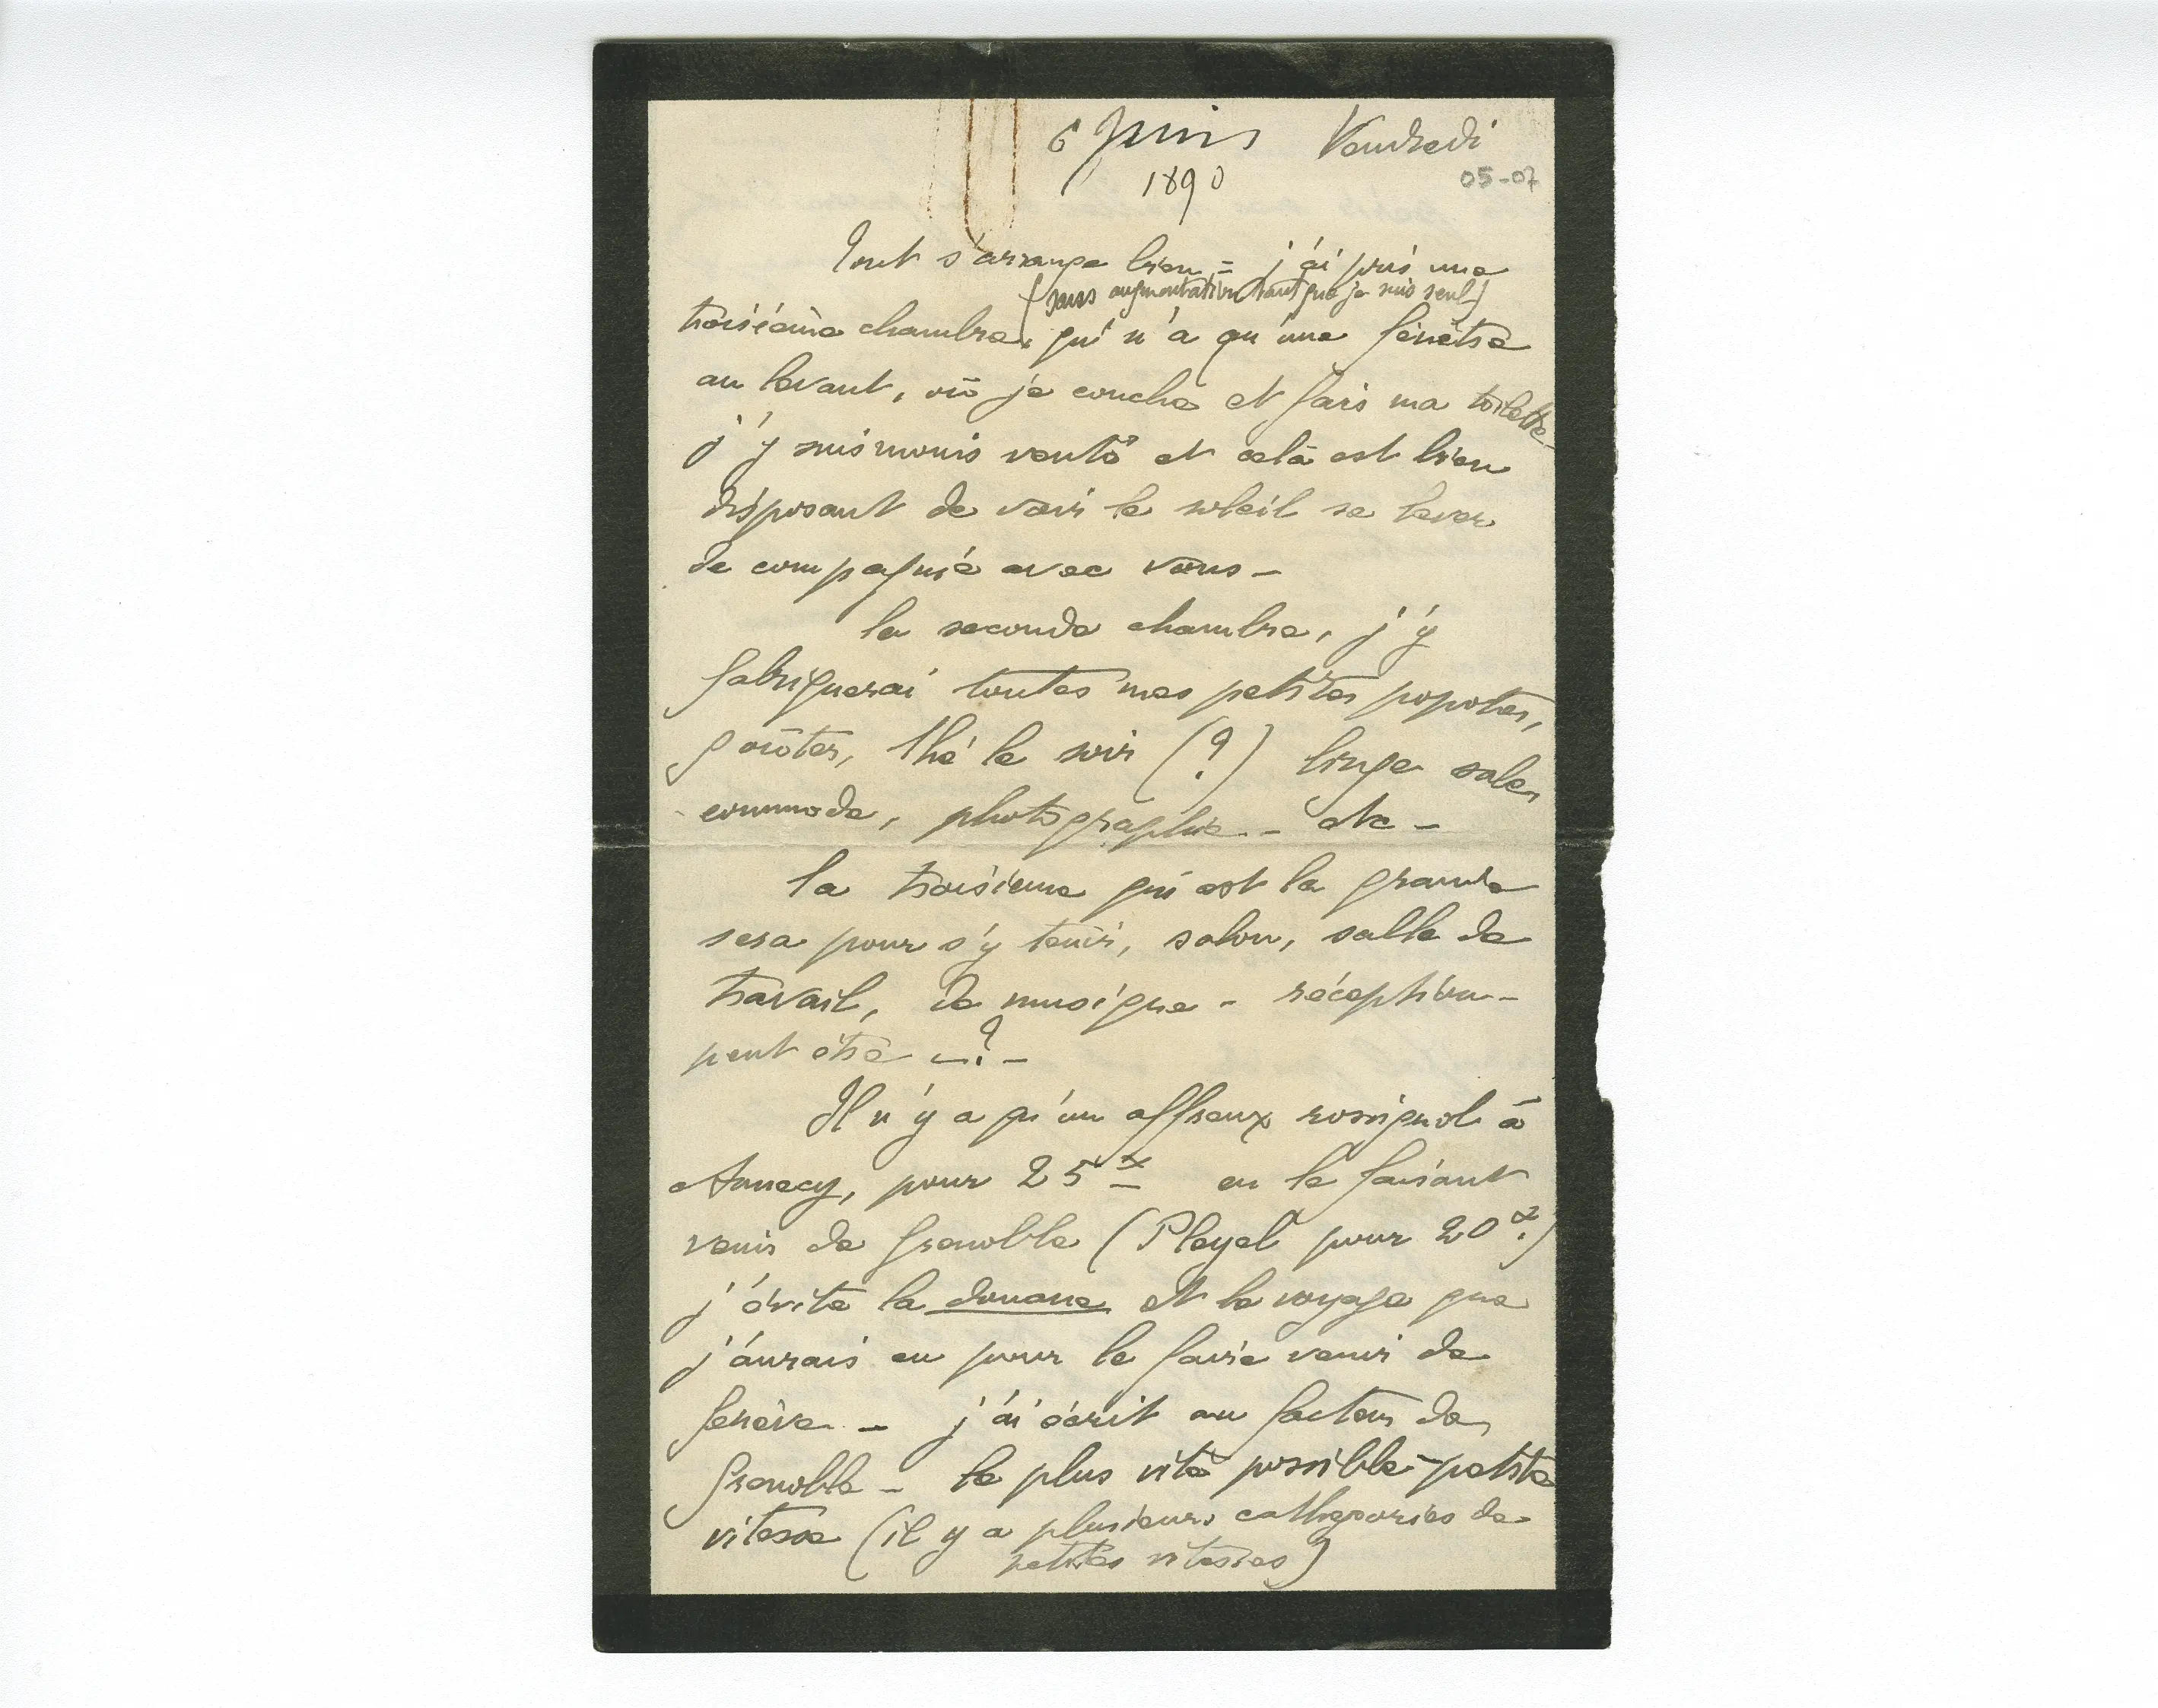 6 Juin Vendredi
1890
05-07
Tout s'arrange bien = j'ai pris une
(sans augmentation tant que je suis seul)
troisième chambre, qui n'a qu'une fenêtre
au levant, où je couche et fais ma toilette -
j'y suis moins venté et celà est bien
disposant de voir le soleil se lever
de compagnie avec vous -
la seconde chambre, j'y
fabriquerai toutes mes petites popotes,
goûter, thé le soir (?) linge sale,
commode, photographie - etc -
la troisième qui est la grande
sera pour s'y tenir, salon, salle de
travail, de musique - réception -
peut être - ? -
Il n'y a qu'un affreux rossignol à
Annecy, pour 25 en le faisant
venir de Grenoble (Pleyel pour 20 )
j'évite la douane et le voyage que
j'aurais eu pour le faire venir de
Genève - j'ai écrit au facteur de
Grenoble - le plus vite possible - petite
vitesse (il y a plusieurs cathégories de
petites vitesses)